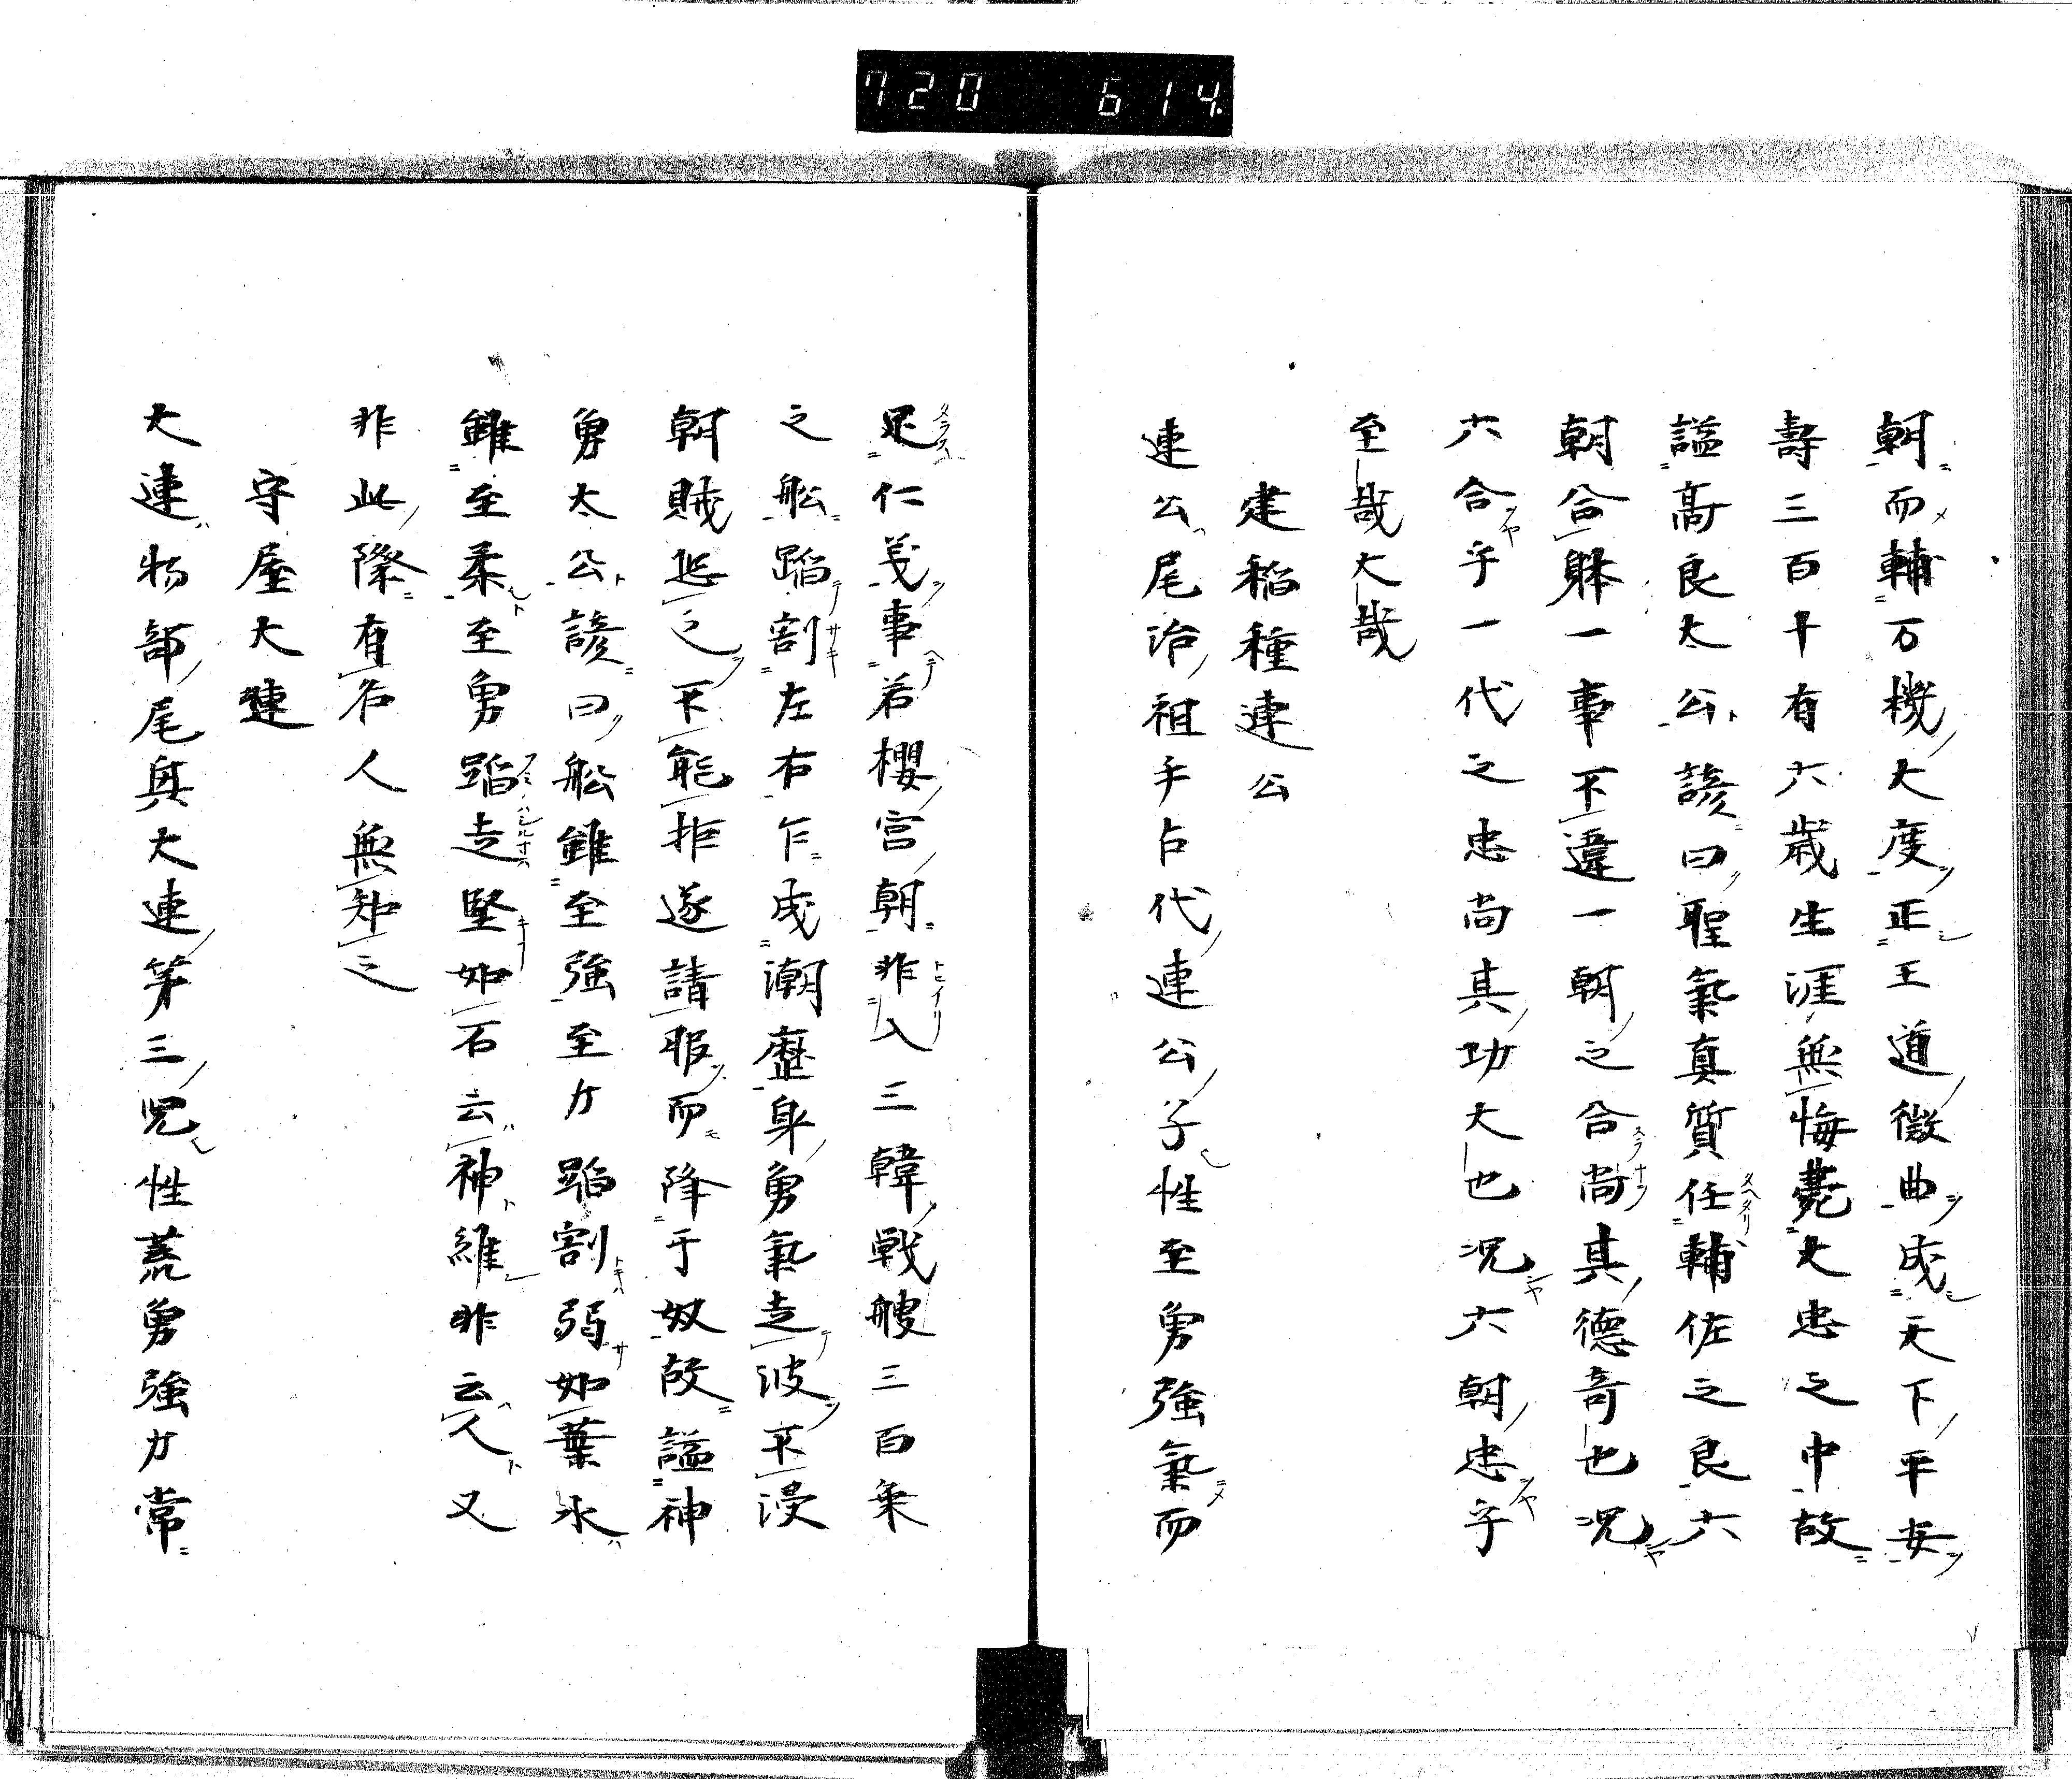 720 614
朝而輔万機大度正王道微曲成天下平安
壽三百十有六歳生涯無悔薨大忠之中故
謚髙良太公諺曰聖氣真質任輔佐之良六
朝合躰一事不違一朝之合尚其德竒也况
六合乎一代之忠尚其功大也况六朝忠乎
至哉大哉
建稲種連公
連公尾治祖乎占代連公子性至勇強氣而
足仁義事若櫻宮朝非入三韓戦艘三百乗
之舩蹈割左右乍成潮壓身勇氣走波不浸
朝賊𢌞之不能拒遂請服而降于奴故謚神
勇太公諺曰舩雖至強至力蹈割弱如葉氷
雖至柔至勇蹈走堅如石云神維非云人又
非此際有名人無知之
守屋大連
大連物部尾輿大連第三児性荒勇強力常